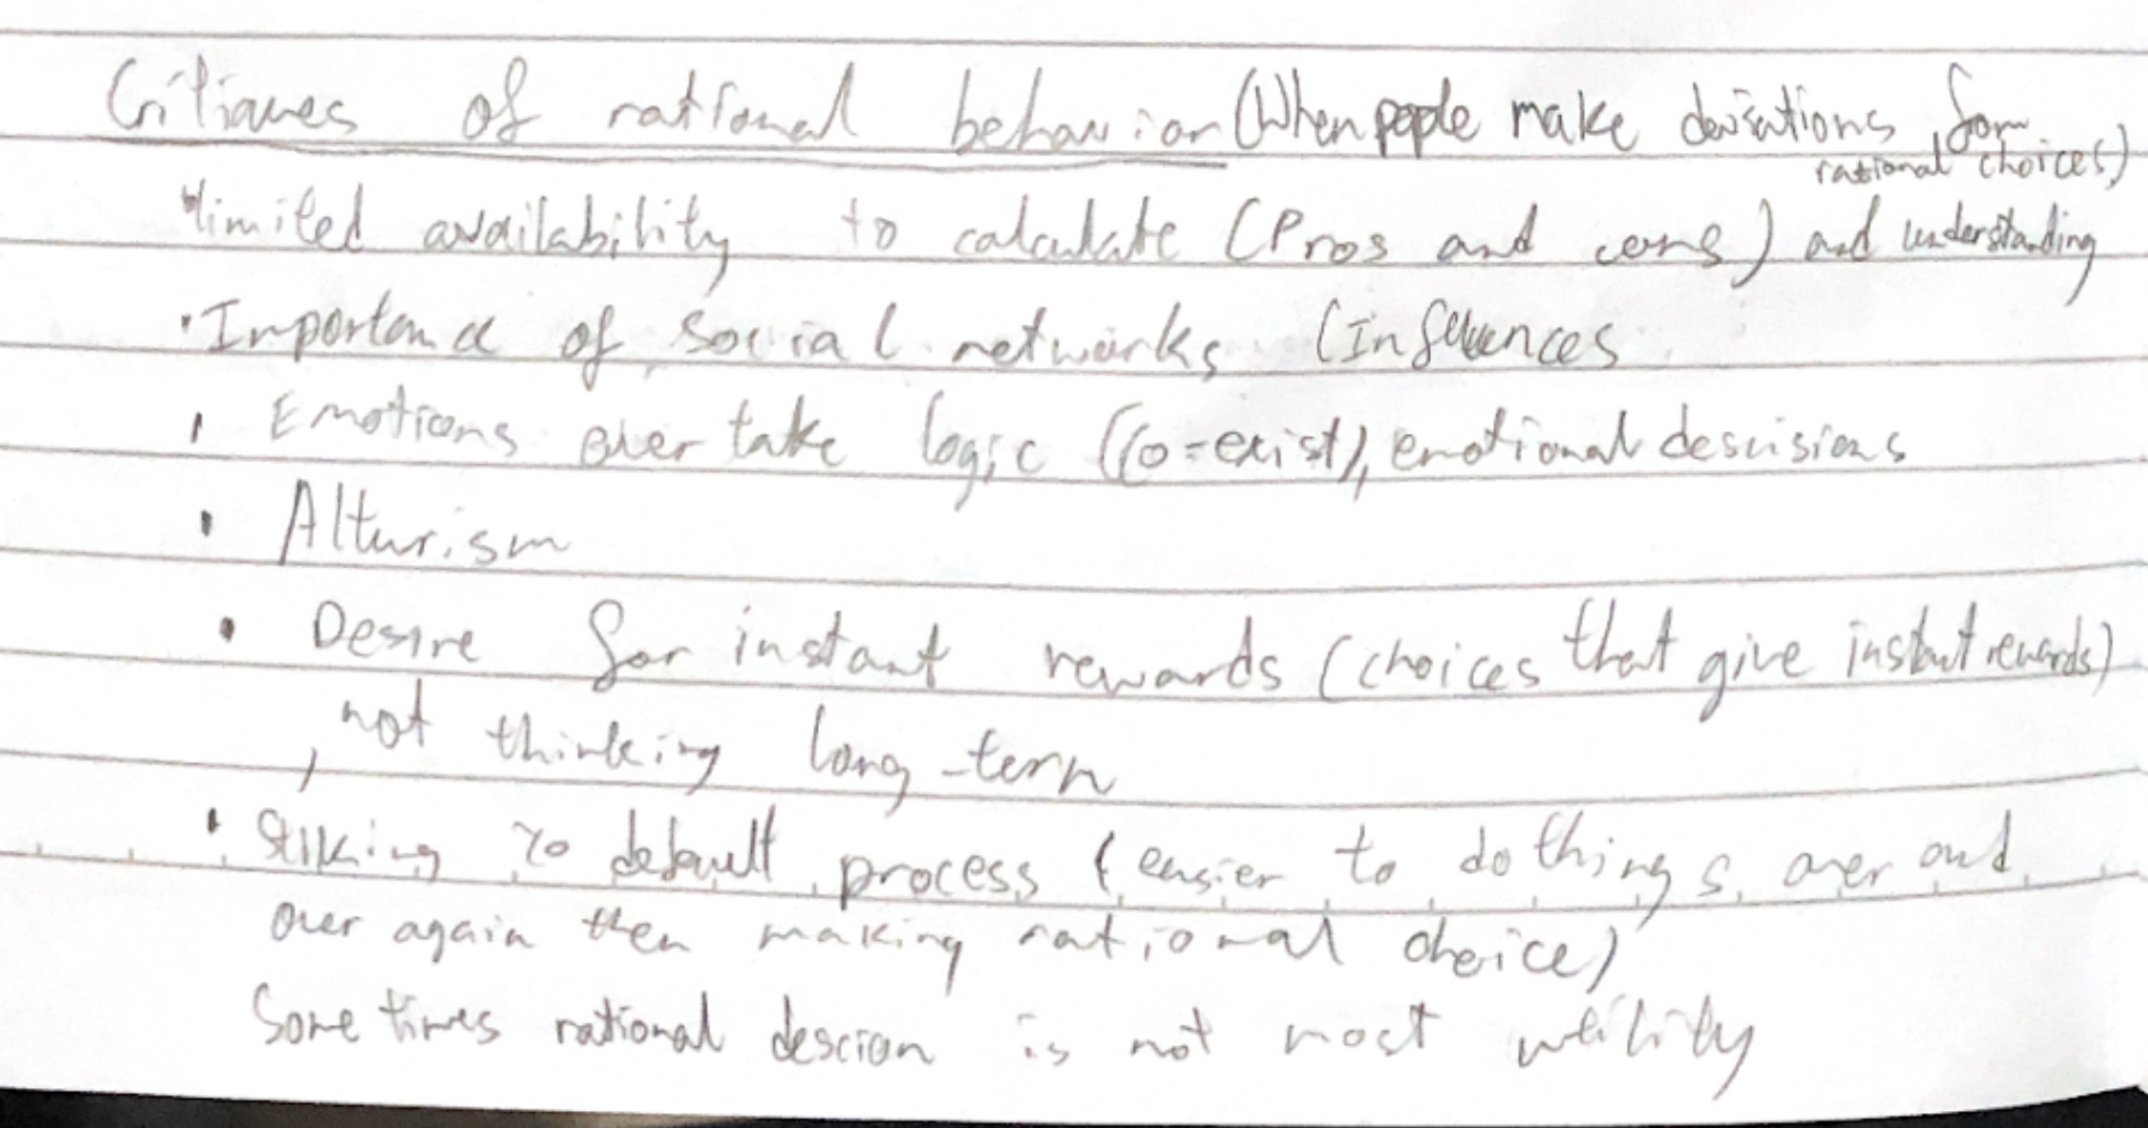 Critiques of rational behavior (When people make deviations from
rational choices)
• limited availability to calculate (Pros and cons) and understanding
• Importance of social networks (Influences
• Emotions over take logic (co-exist), emotional descisions
• Alturism
• Desire for instant rewards (choices that give instant rewards)
, not thinking long-term
• Stiking to default process (easier to do things over and
over again then making rational choice)
Some times rational descion is not most utility